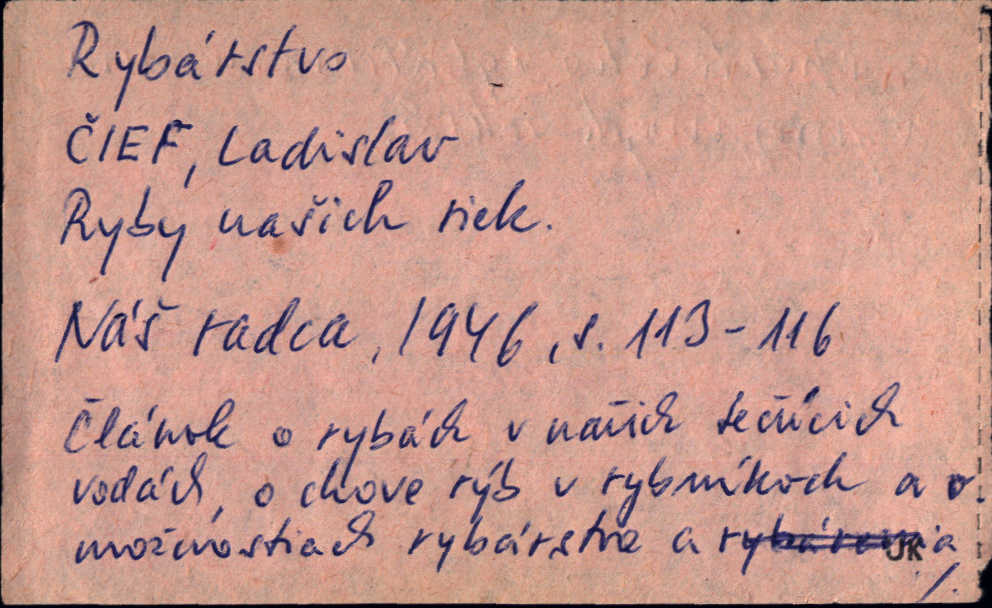 Rybárstvo
ČIEF, Ladislav
Ryby našich riek.
Náš radca, 1946, s. 113-116
Článok o rybách v našich tečúcich
vodách, o chove rýb v rybníkoch a o
možnostiach rybárstva a
UK